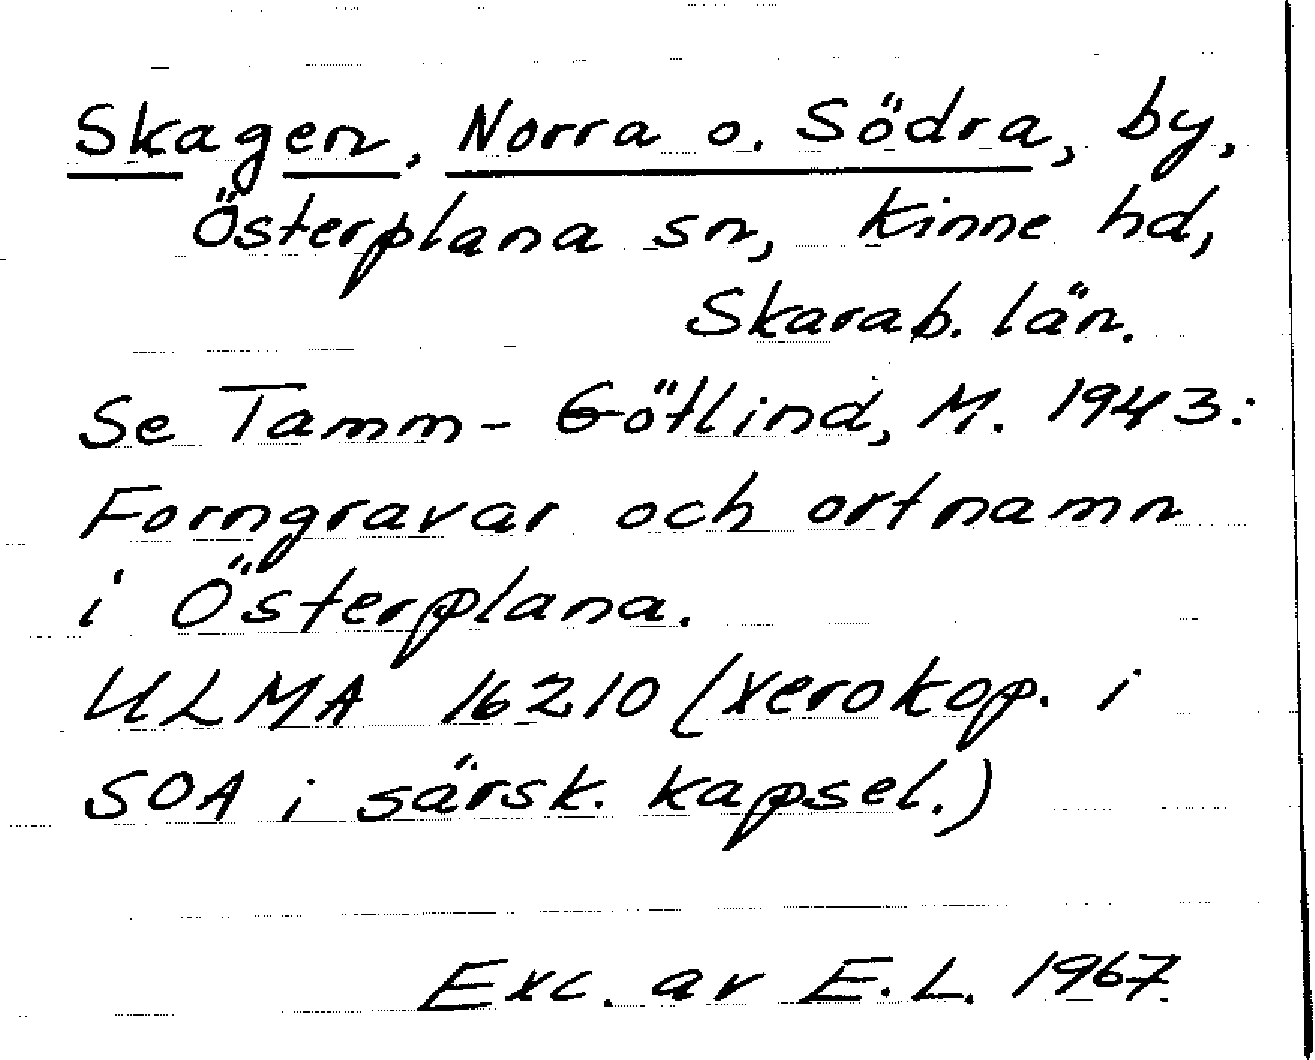 Skagen, Norra o. Södra, by,
Österplana sn, Kinne hd,
Skarab. län.
Se Tamm-Götlind, M. 1943:
Forngravar och ortnamn
i Österplana.
ULMA 16210 (xerokop. i
SOA i särsk. kapsel.)
Exc. av E.L. 1967